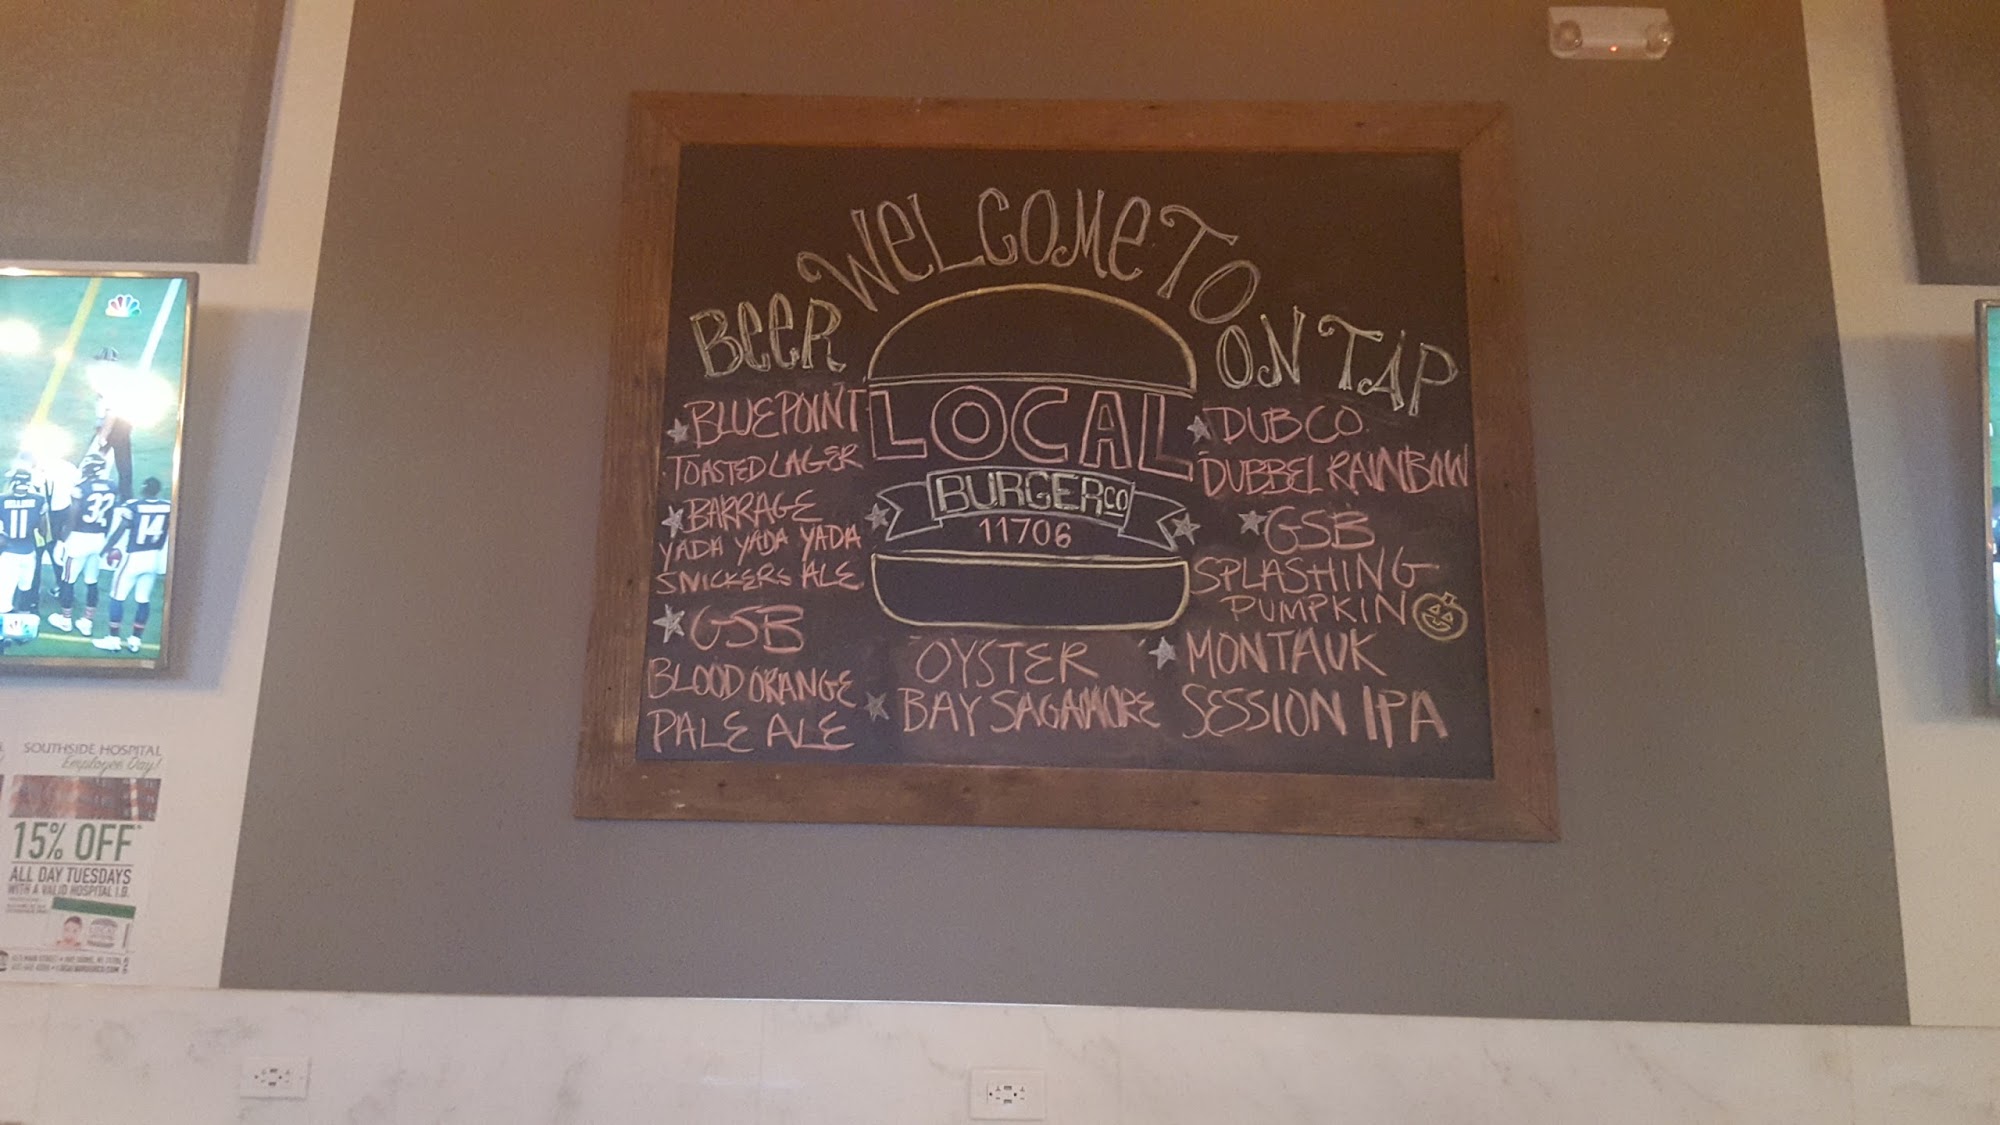 WELCOME TO
BEER
ON TAP
LOCAL
BURGER CO
11706
BLUEPOINT
TOASTED LAGER
BARRAGE
YADA YADA YADA
SNICKERS ALE
GSB
BLOOD ORANGE
PALE ALE
OYSTER
BAY SAGAMORE
DUBCO
DUBBEL RAINBOW
GSB
SPLASHING
PUMPKIN
MONTAUK
SESSION IPA
11
32
14
SOUTHSIDE HOSPITAL
Employee Day!
15% OFF*
ALL DAY TUESDAYS
WITH A VALID HOSPITAL I.D.
LOCAL